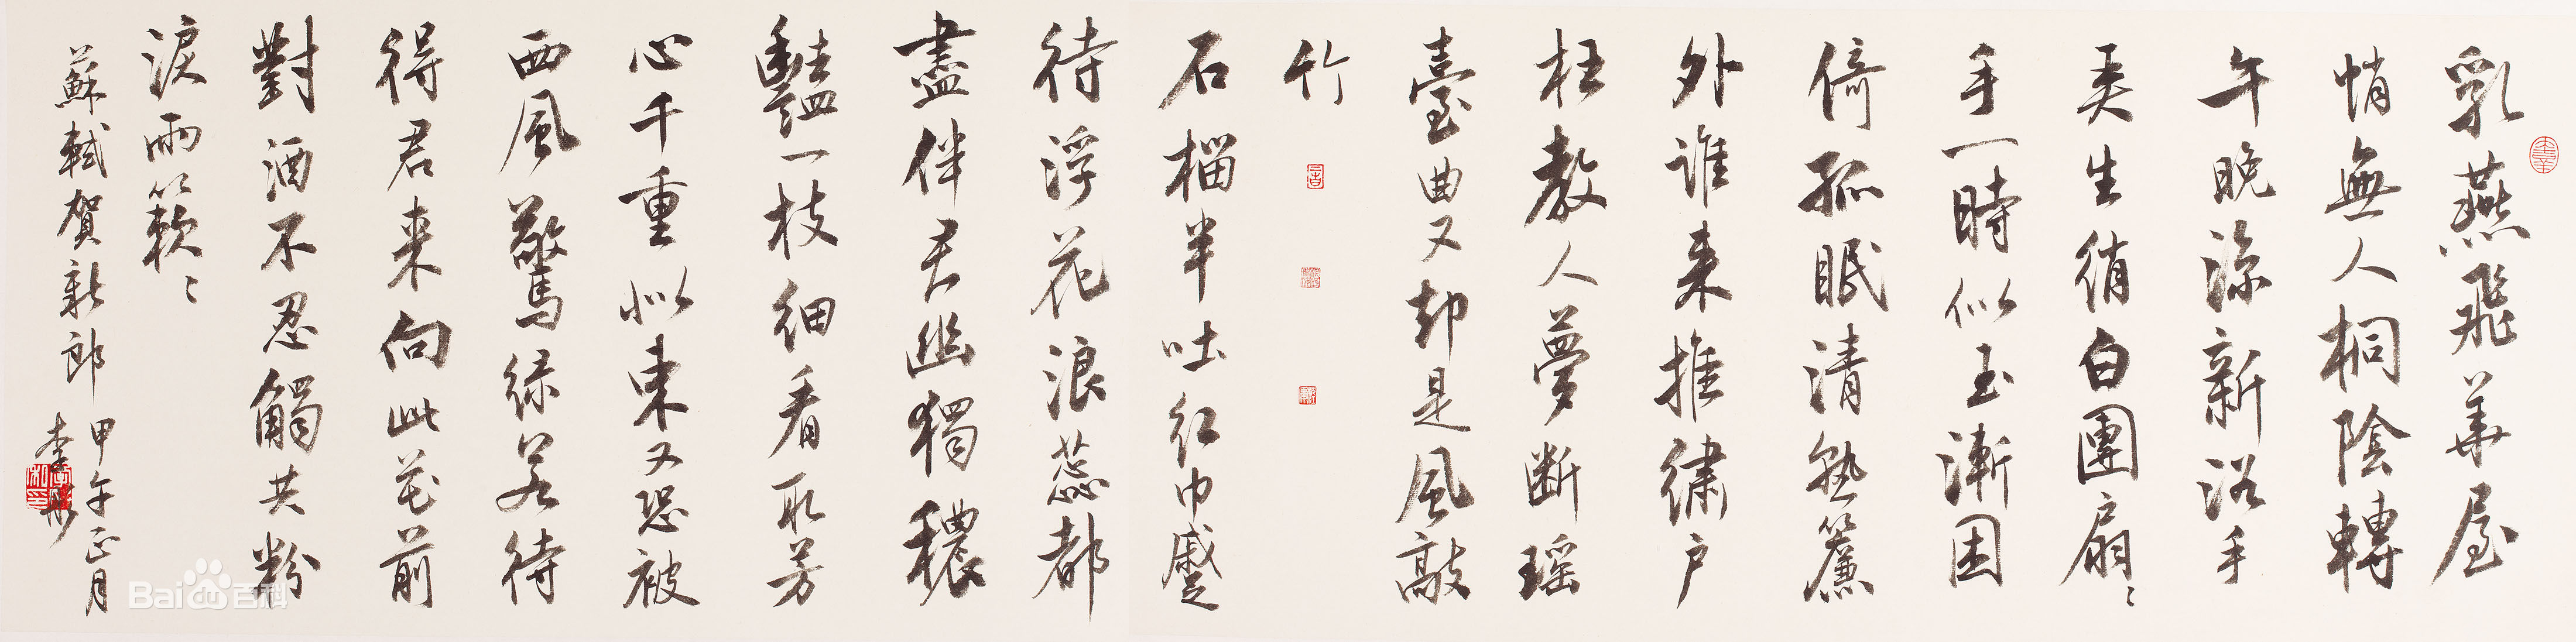 乳燕飛華屋
悄無人桐陰轉
午晚涼新浴手
弄生綃白團扇〻
手一時似玉漸困
倚孤眠清熟簾
外誰来推繡户
枉教人夢断瑶
臺曲又却是風敲
竹
石榴半吐红巾蹙
待浮花浪蕊都
盡伴君幽獨穠
豔一枝細看取芳
心千重似束又恐被
西風驚緑若待
得君来向此花前
對酒不忍觸共粉
淚兩簌〻
蘇軾賀新郎
甲午正月
李
Bai百科